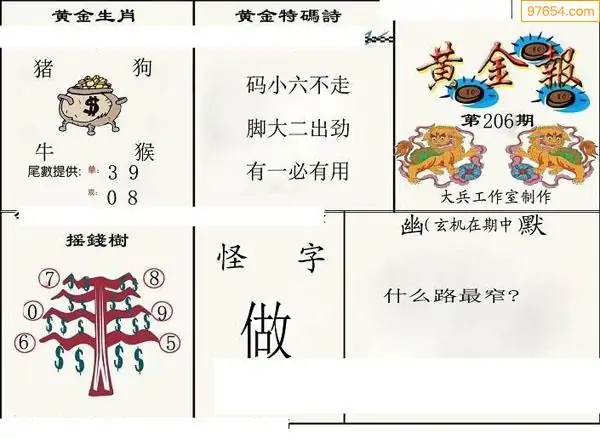 97654.com
黄金生肖
猪 狗
$
牛 猴
尾數提供: 单: 3 9
双: 0 8
黄金特碼詩
码小六不走
脚大二出劲
有一必有用
黄金報
第206期
大兵工作室制作
摇錢樹
7 8
0 9
6 5
$ $ $ $ $ $ $ $ $ $ $ $
怪 字
做
幽(玄机在期中)默
什么路最窄?